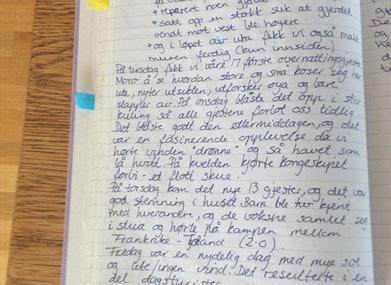 + reparert noen gjerder
+ satt opp en stokk slik at gjerdet
vendt mot vest ble høyere
+ og i løpet av uka fikk vi også malt
muren ferdig (kun innsiden)
På tirsdag fikk vi våre 17 første overnattingsgjester
Moro å se hvordan store og små koser seg her
ute, nyter utsikten, utforsker øya og bare
slapper av. På onsdag blåste det opp i stiv
kuling så alle gjestene forlot oss tidlig
Det blåste godt den ettermiddagen, og det
var en fascinerende opplevelse da vi
hørte vinden "drønne" og så havet som
lå hvitt. På kvelden kjørte kongeskipet
forbi - et flott skue.
På torsdag kom det nye 13 gjester, og det var
god stemning i huset. Barn ble tur kjent
med hverandre, og de voksne samlet seg
i stua og hørte på kampen mellom
Frankrike - Island (2-0).
Fredag var en nydelig dag med mye sol
og lite/ingen vind. Det resulterte i en
del dagsturister